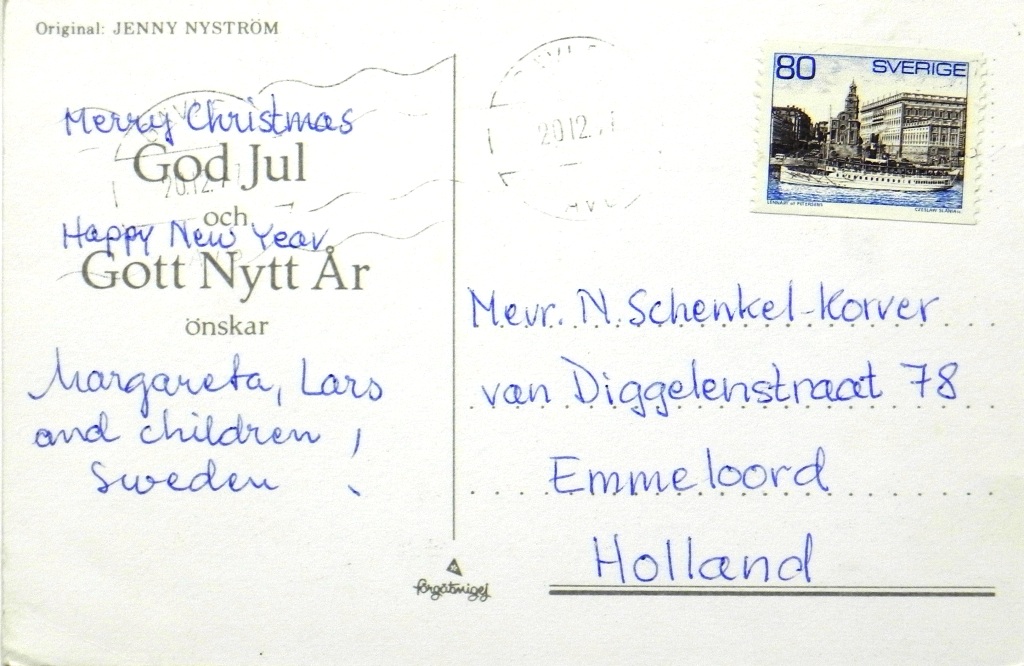 Original: JENNY NYSTRÖM
Merry Christmas
God Jul
och
Happy New Year
Gott Nytt År
önskar
Margareta, Lars
and children,
Sweden
förgätmigej
80 SVERIGE
CZESLAW SLANIA
20.12.
20.12.
Mevr. N. Schenkel-Korver
van Diggelenstraat 78
Emmeloord
Holland